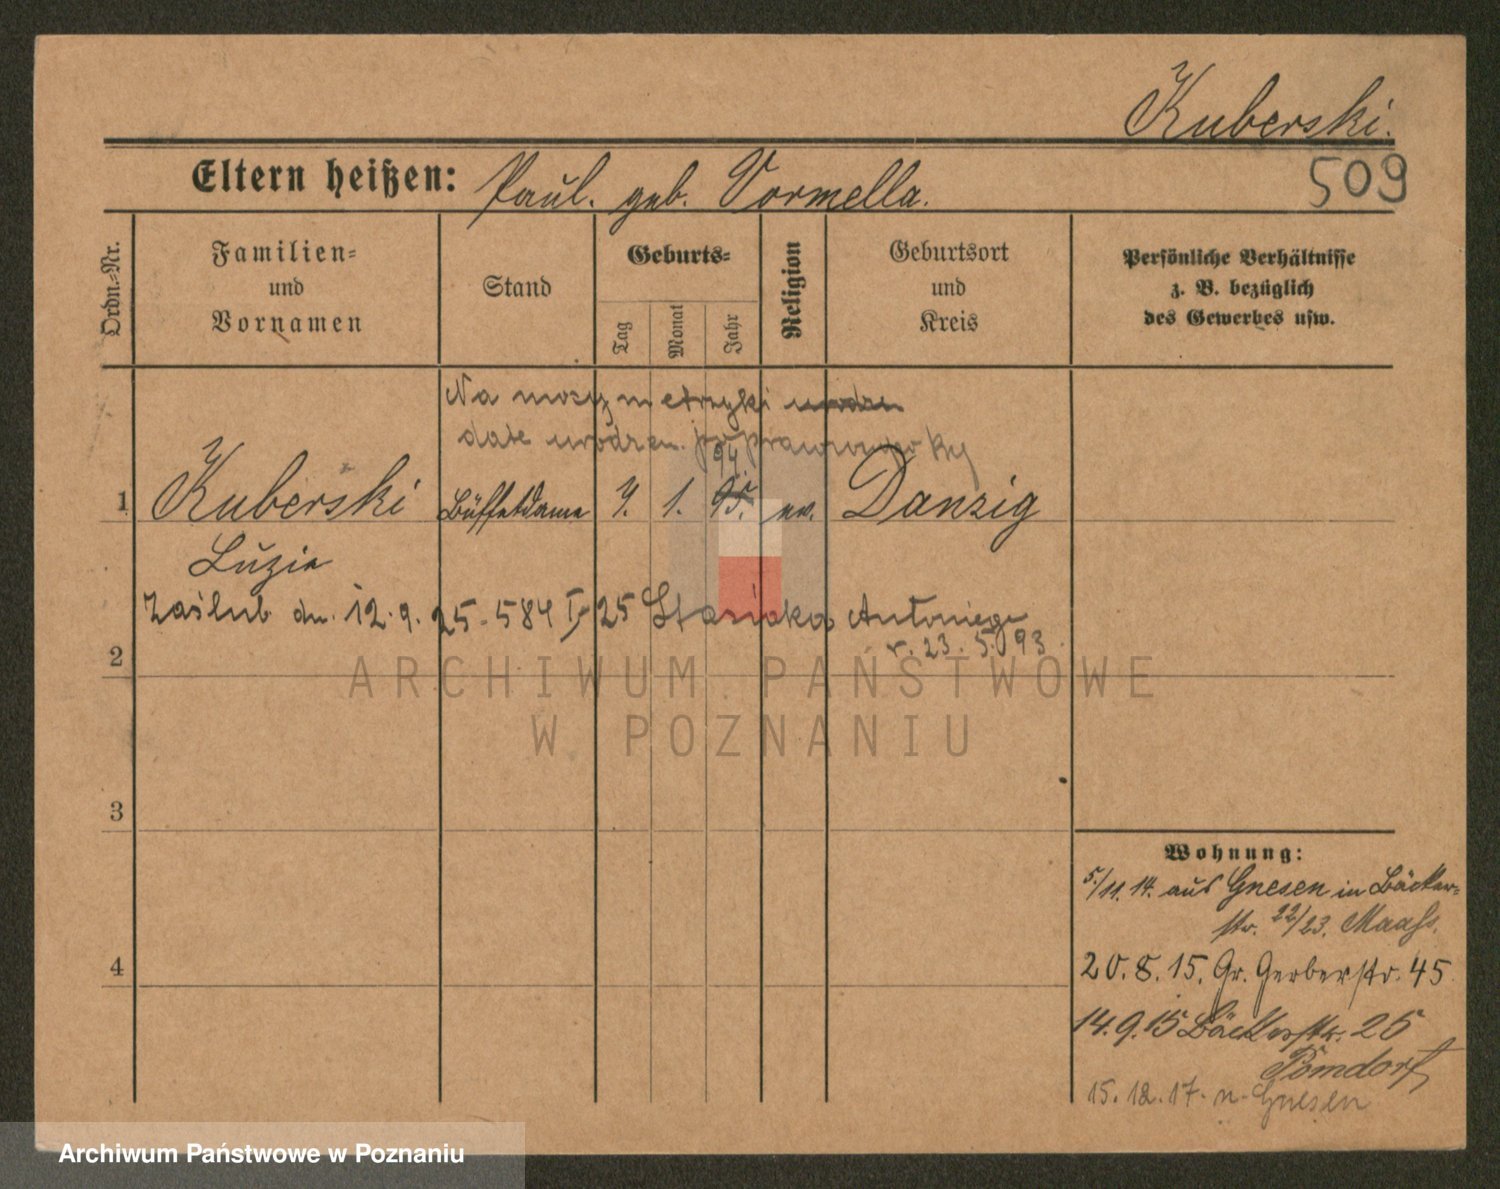 Kuberski.
509
Eltern heißen: Paul. geb. Vormella.
Ordn.=Nr.
Familien=
und
Vornamen
Stand
Geburts=
Tag
Monat
Jahr
Religion
Geburtsort
und
Kreis
Persönliche Verhältnisse
z. B. bezüglich
des Gewerbes usw.
Na mocy metryki urodzen
datę urodzen.
94.
1 Kuberski Büffetdame 7. 1. 95. ev. Danzig
Luzie
Zaślub. dn. 12.9.25-584 I/25 Stasiaka Antoniego
r. 23.5.93.
2
3
4
Wohnung:
5./11.14. aus Gnesen in Bäcker=
str. 22/23. Maaß.
20.8.15. Gr. Gerberstr. 45
14.9.15 Bäckerstr. 25
Pomdorf
15.12.17. n. Gnesen
ARCHIWUM PAŃSTWOWE
W POZNANIU
Archiwum Państwowe w Poznaniu